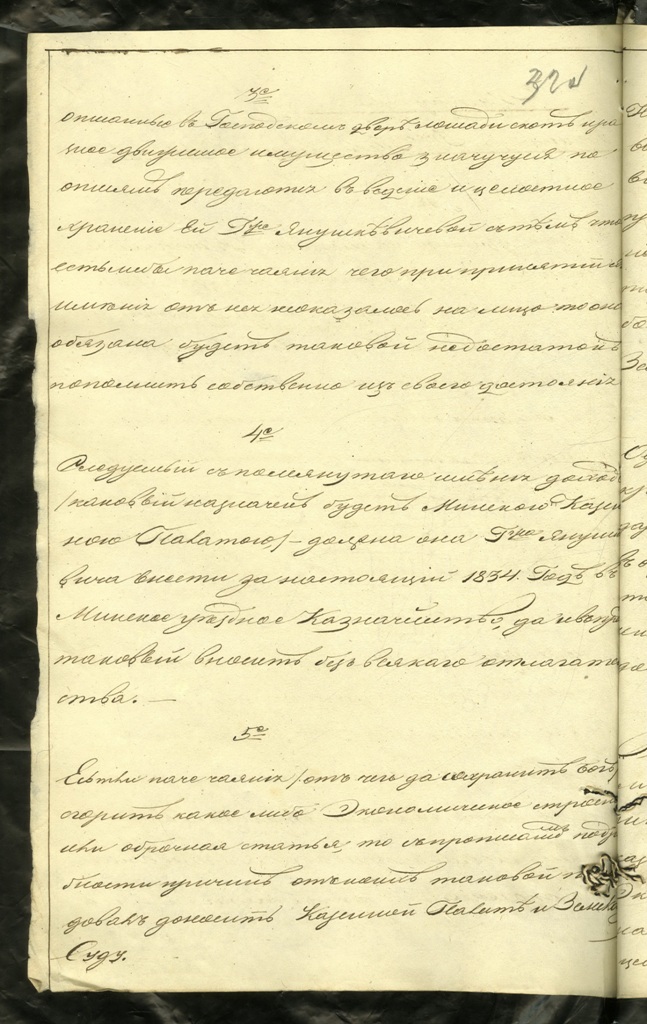 3е
описанные въ Господскомъ дворѣ лошади скотъ и
движимое имущество значущуся по
описямъ передаются въ вѣденіе и целостное
храненіе Ей Грже Янушкѣвичевой съ тѣмъ что
естьлибы паче чаянія чего при принятіи
имѣнія отъ нея неоказалось на лицо то она
обязана будетъ таковой недостатокъ
пополнить собственно изъ своего достоянія
4е
Следуемый съ помянутаго имѣнія доходъ
/каковый назначенъ будетъ Минскою Казен
ною Палатою/ — должна она Гржа Янушке
вича внести за настоящій 1834. Годъ въ
Минское уездное Казначейство, да и впредь
таковый вносить безъ всякаго отлагатель
ства. —
5е
Естьли паче чаянія /отъ чего да сохранитъ богъ/
сгоритъ какое либо Экономическое строеніе
или оброчная статья, то съ прописаніемъ подро
бности причинъ отъ коихъ таковой
доносить Казенной Палатѣ и Земскому
Суду.